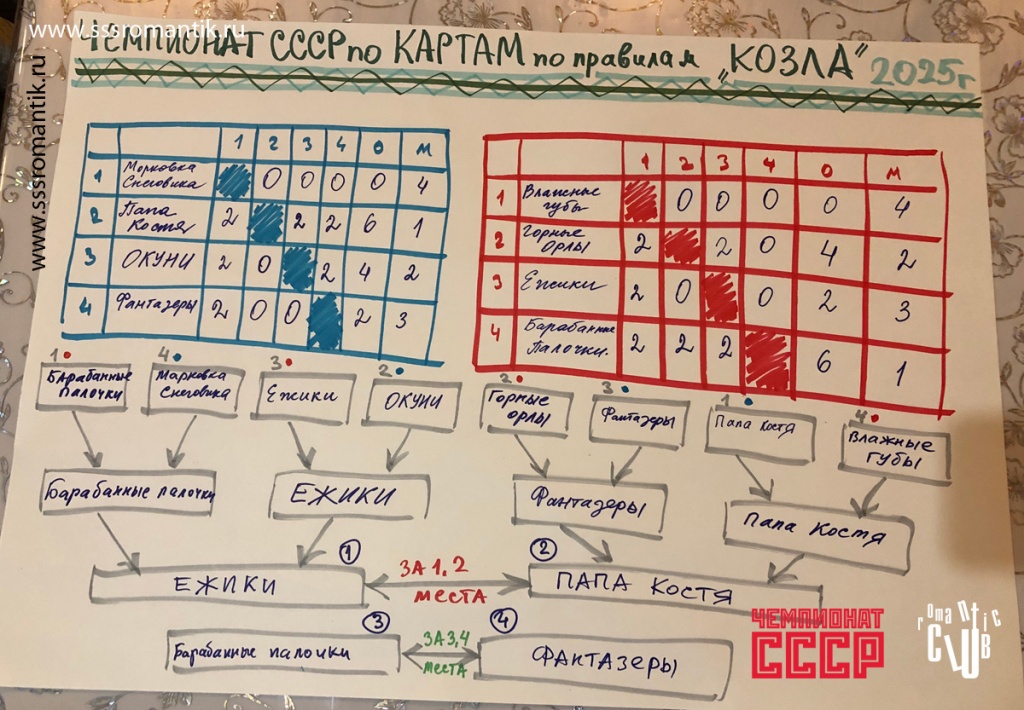 www.sssromantik.ru
www.sssromantik.ru
ЧЕМПИОНАТ СССР по КАРТАМ по правилам „КОЗЛА" 2025г
1 2 3 4 О М
1 Морковка Снеговика 0 0 0 0 4
2 Папа Костя 2 2 2 6 1
3 ОКУНИ 2 0 2 4 2
4 Фантазеры 2 0 0 2 3
1 2 3 4 О М
1 Влажные губы 0 0 0 0 4
2 Горные орлы 2 2 0 4 2
3 Ежики 2 0 0 2 3
4 Барабанные Палочки 2 2 2 6 1
1 4 3 2 2 3 1 4
Барабанные палочки
Марковка Снеговика
Ежики
ОКУНИ
Горные орлы
Фантазеры
Папа Костя
Влажные губы
Барабанные палочки
ЕЖИКИ
Фантазеры
Папа Костя
1
2
ЕЖИКИ
ЗА 1,2
места
ПАПА Костя
3
4
Барабанные палочки
ЗА 3,4
места
ФАНТАЗЕРЫ
ЧЕМПИОНАТ
СССР
romantic
CLUB